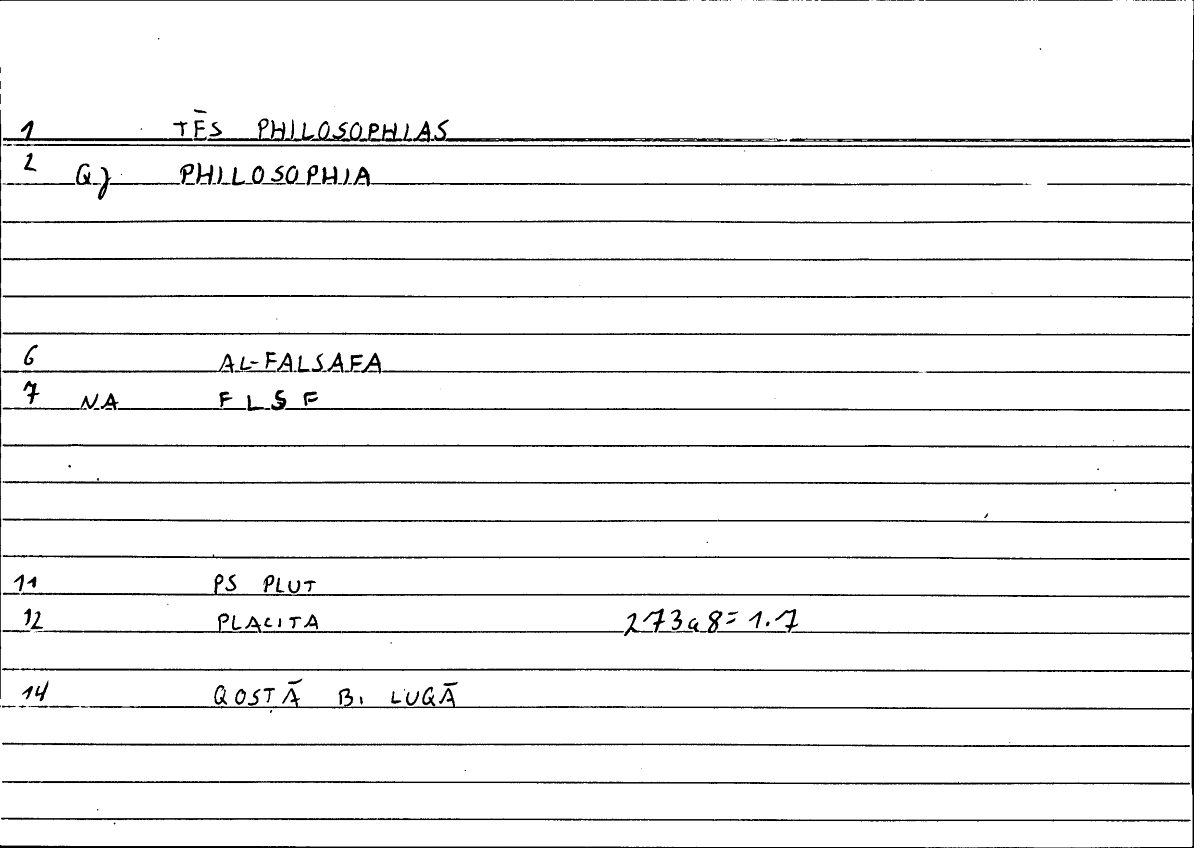 1 TĒS PHILOSOPHIAS
2 Q} PHILOSOPHIA
6 AL-FALSAFA
7 NA F L S F
11 PS PLUT
12 PLACITA 273a8=1.7
14 QOSṬĀ B. LUQĀ